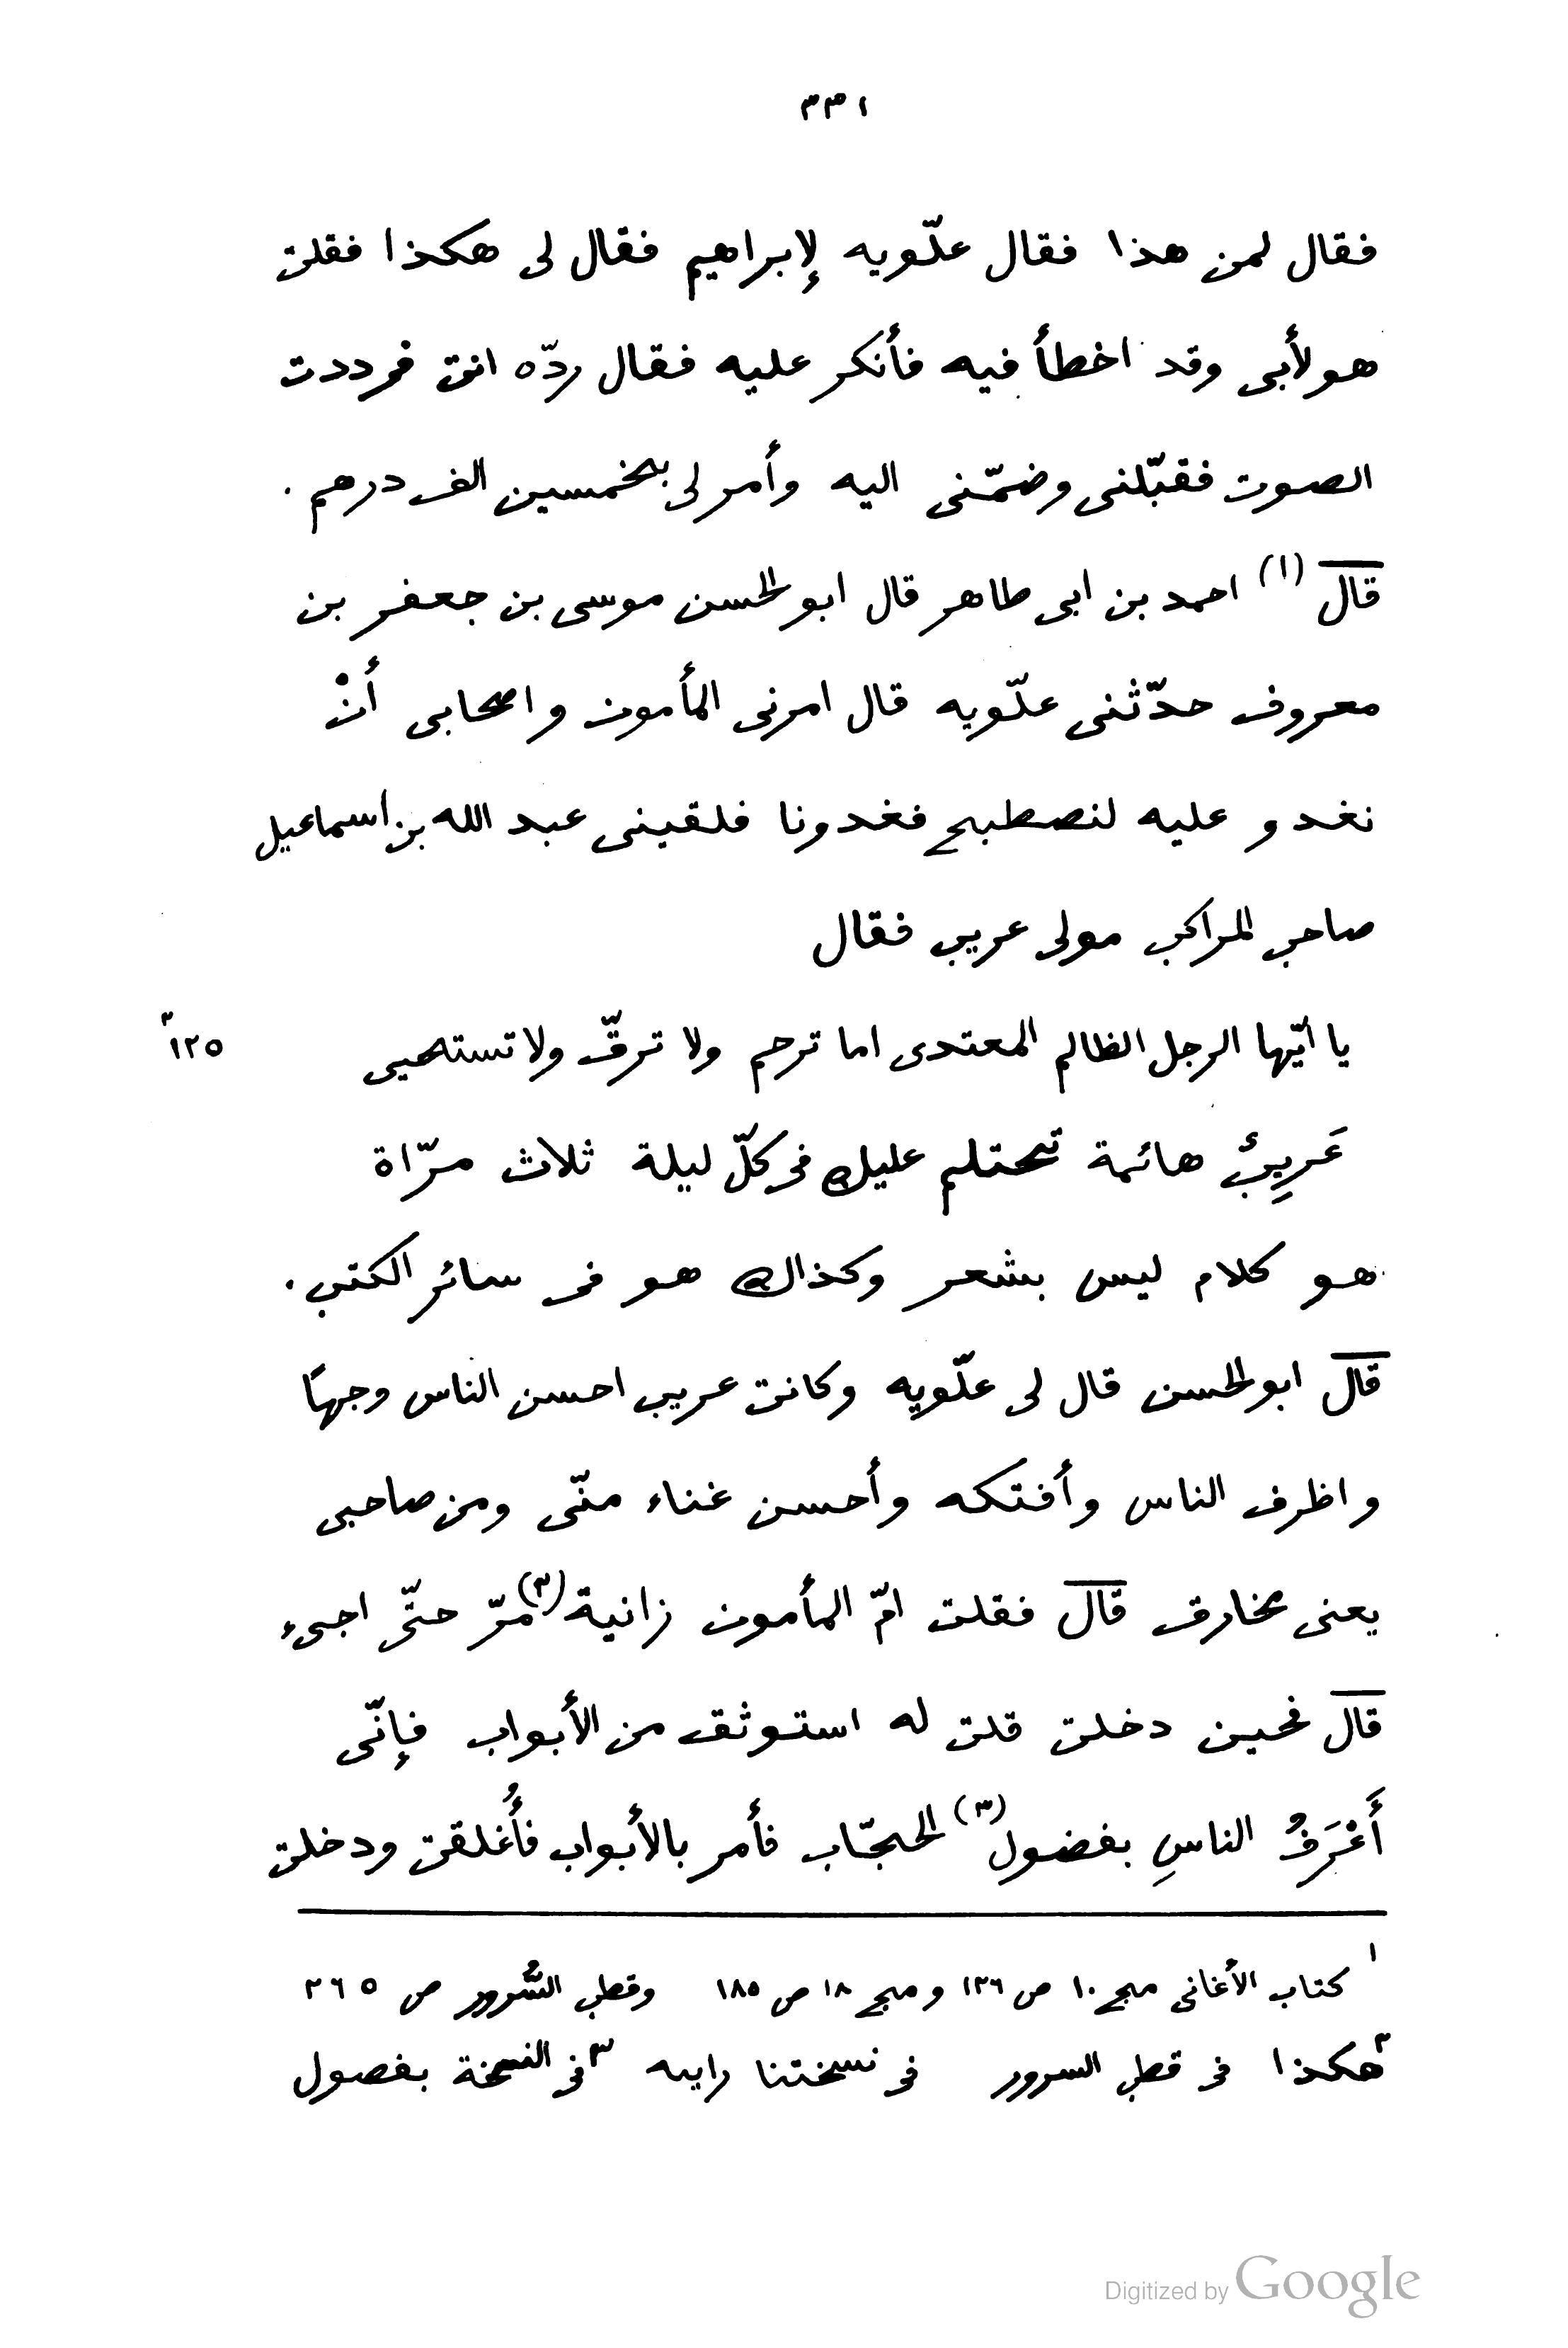 ٣٣١
فقال لمن هذا فقال علّويه لإبراهيم فقال لى هكذا فقلت
هو لأبى وقد اخطأ فيه فأنكر عليه فقال ردّه انت فرددت
الصوت فقبّلنى وضمّنى اليه وأمر لى بخمسين الف درهم .
قال (١) احمد بن ابى طاهر قال ابو الحسن موسى بن جعفر بن
معروف حدّثنى علّويه قال امرنى المأمون واصحابى أنْ
نغدو عليه لنصطبح فغدونا فلقينى عبد الله بن اسماعيل
صاحب المراكب مولى عريب فقال
يا ايّها الرجل الظالم المعتدى اما ترحم ولا ترقّ ولا تستحيى ١٢٥
عَرِيبُ هائمة تحتلم عليك فى كلّ ليلة ثلاث مرّاة
هو كلام ليس بشعر وكذاك هو فى سائر الكتب .
قال ابو الحسن قال لى علّويه وكانت عريب احسن الناس وجهًا
واظرف الناس وأفتكه وأحسن غناء منّى ومن صاحبى
يعنى مخارق قال فقلت امّ المأمون زانية (٢) مرّ حتّى اجىء
قال فحين دخلت قلت له استوثق من الأبواب فإنّى
أَعْرَفُ الناسِ بفضول (٣) الحجّاب فأمر بالأبواب فأُغلقت ودخلت
١ كتاب الأغانى مج ١٠ ص ١٢٦ ومج ١٨ ص ١٨٥ وقطب السُّرور ص ٢٦٥
٢ هكذا فى قطب السرور فى نسختنا رايىه ٣ فى النسخة بفصول
Digitized by Google